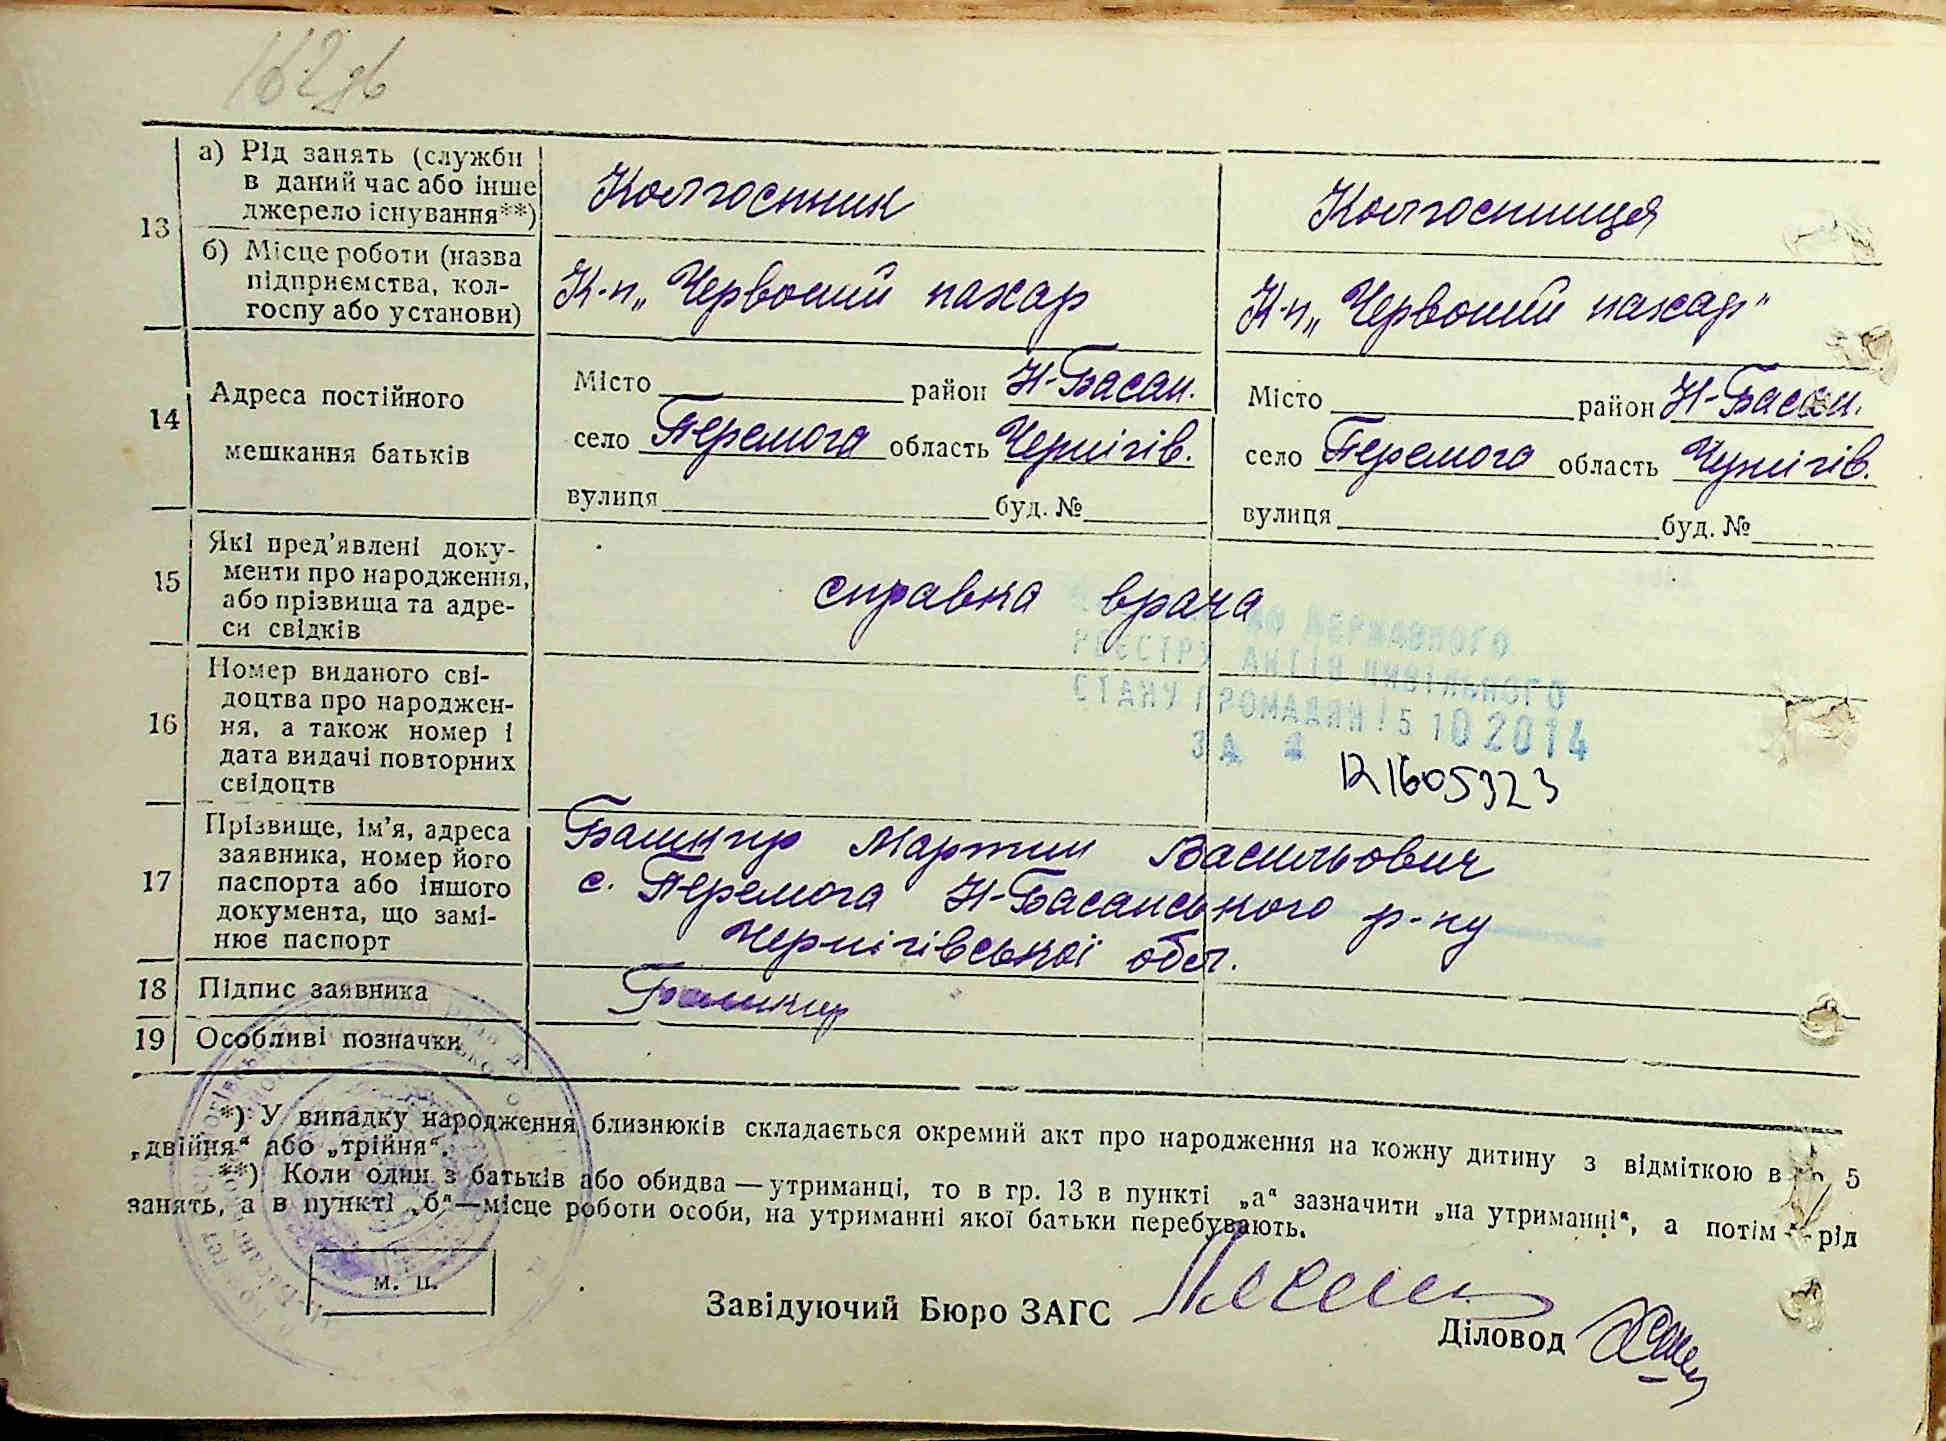 162 зв
13
а) Рід занять (служби
в даний час або інше
джерело існування**)
Колгоспник
Колгоспниця
б) Місце роботи (назва
підприємства, кол-
госпу або установи)
К-п „Червоний пахар
К-п „Червоний пахар"
14
Адреса постійного
мешкання батьків
Місто район Н-Басан.
село Перемога область Чернігів.
вулиця буд. №
Місто район Н-Басан.
село Перемога область Чернігів.
вулиця буд. №
15
Які пред'явлені доку-
менти про народження,
або прізвища та адре-
си свідків
справка врача
ДО ДЕРЖАВНОГО
РЕЄСТРУ АКТІВ ЦИВІЛЬНОГО
СТАНУ ГРОМАДЯН 15 10 2014
ЗА
1605323
16
Номер виданого сві-
доцтва про народжен-
ня, а також номер і
дата видачі повторних
свідоцтв
17
Прізвище, ім'я, адреса
заявника, номер його
паспорта або іншого
документа, що замі-
нює паспорт
Башкир Мартин Васильович
с. Перемога Н-Басанського р-ну
Чернігівської обл.
18
Підпис заявника
Башкир
19
Особливі позначки
*) У випадку народження близнюків складається окремий акт про народження на кожну дитину з відміткою в 5
„двійня" або „трійня".
**) Коли один з батьків або обидва — утриманці, то в гр. 13 в пункті „а" зазначити „на утриманні", а потім — рід
занять, а в пункті „б"—місце роботи особи, на утриманні якої батьки перебувають.
м. п.
Завідуючий Бюро ЗАГС
Діловод